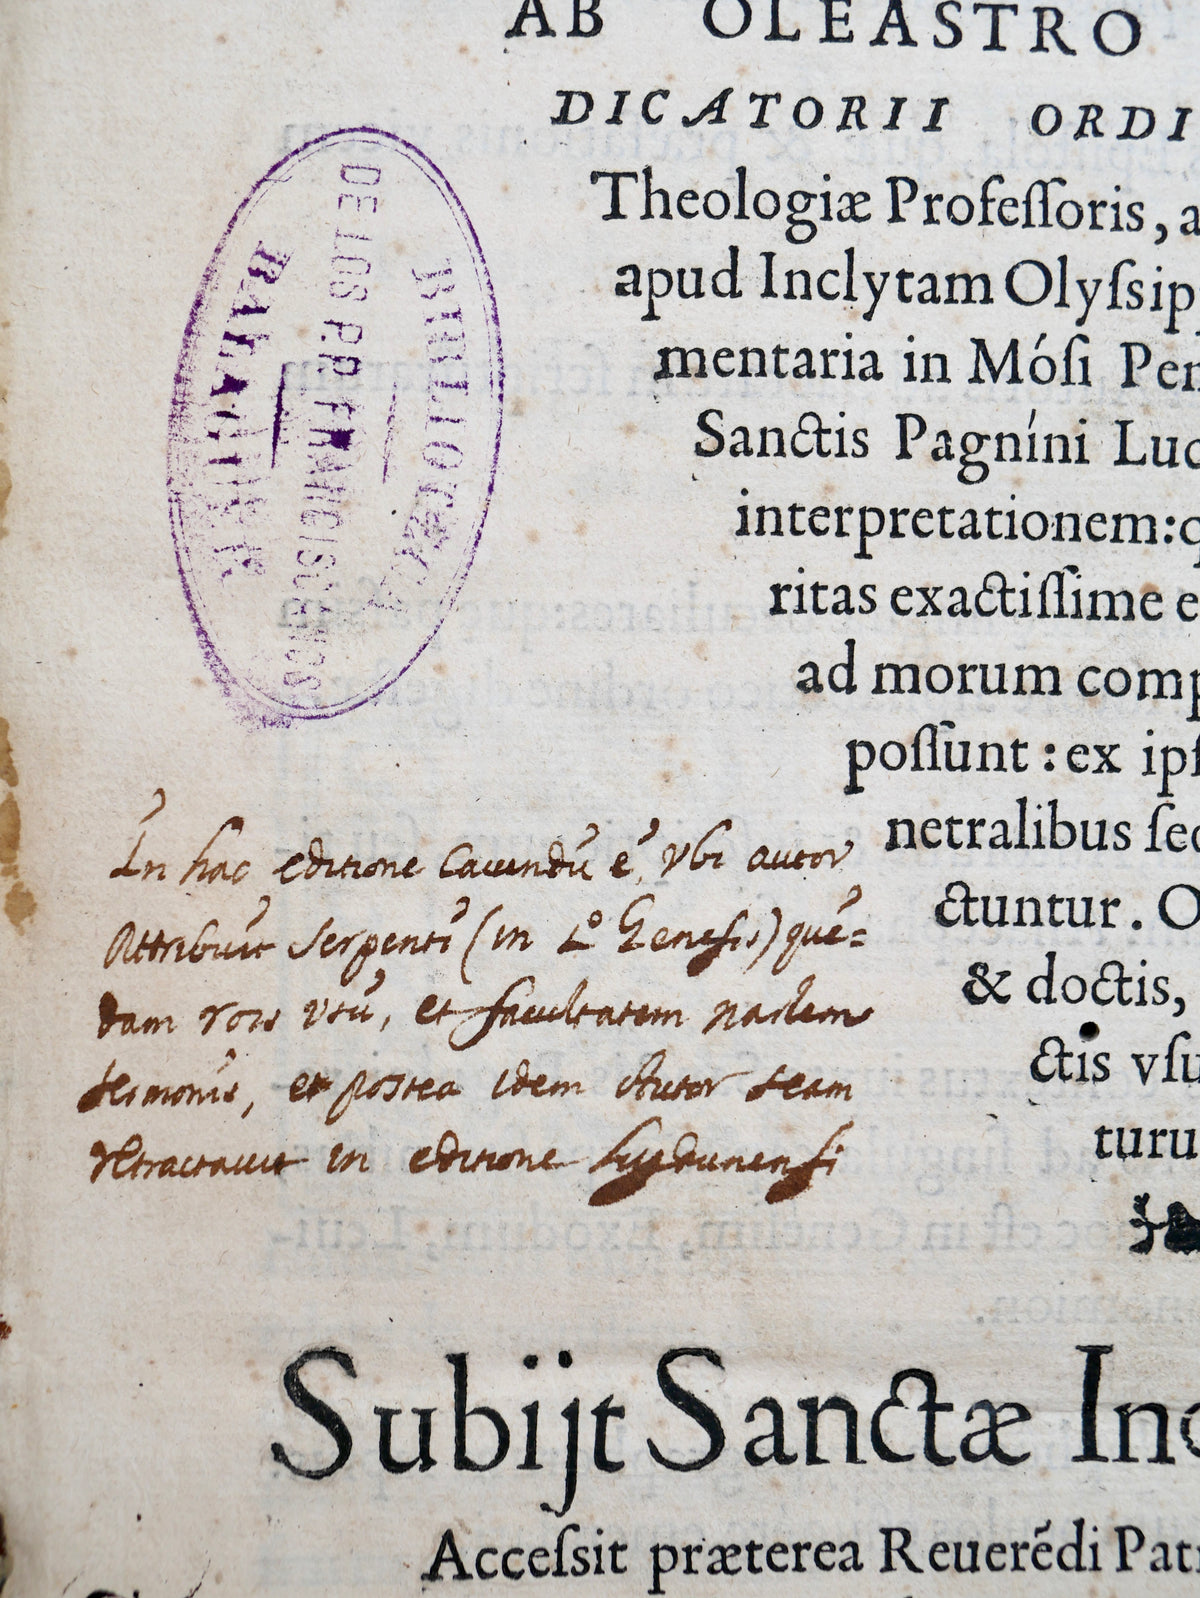 AB OLEASTRO
DICATORII ORDI
Theologiæ Profeſſoris, a
apud Inclytam Olyſsip
mentaria in Móſi Pen
Sanctis Pagníni Luc
interpretationem: q
ritas exactiſſime e
ad morum comp
poſſunt : ex ipſ
netralibus ſec
ctuntur. O
& doctis,
ctis vſu
turu
BIBLIOTECA
DE LOS P.P. FRANCISCANOS
BALAGUER
In hac editione Cauendū ē, vbi autor
Attribuit Serpenti (in Lº Genesis) quē=
dam vocis vsū, et facultatem
sermonis, et postea idem Autor
retractauit in editione Lugdunensi
Subijt Sanctæ Inq
Acceſsit præterea Reuerédi Patr